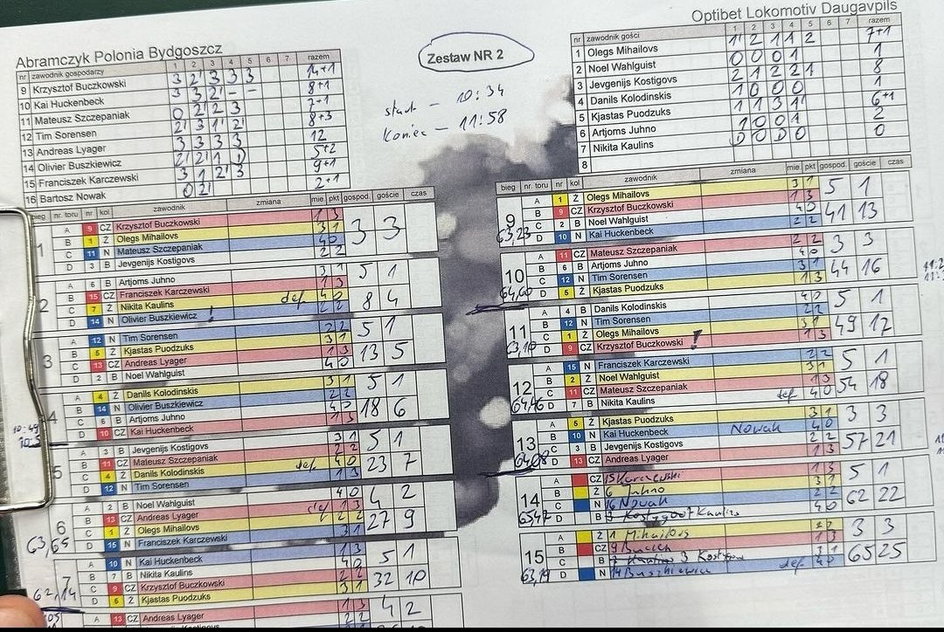 Abramczyk Polonia Bydgoszcz
nr zawodnik gospodarzy 1 2 3 4 5 6 7 razem
9 Krzysztof Buczkowski 3 2' 3 3 3 14+1
10 Kai Huckenbeck 3 3 2' - - 8+1
11 Mateusz Szczepaniak 0 2 2 3 7+1
12 Tim Sorensen 2' 3 1' 2' 8+3
13 Andreas Lyager 3 3 3 3 12
14 Olivier Buszkiewicz 5+2
15 Franciszek Karczewski 3 1 2' 3 9+1
16 Bartosz Nowak 0 2' 2+1
Zestaw NR 2
start - 10:34
Koniec - 11:58
Optibet Lokomotiv Daugavpils
nr zawodnik gości 1 2 3 4 5 6 7 razem
1 Olegs Mihailovs 1' 2 1 1 2 7+1
2 Noel Wahlguist 0 0 0 1 1
3 Jevgenijs Kostigovs 2 1 2 2 1 8
4 Danils Kolodinskis 1 0 0 0 1
5 Kjastas Puodzuks 1 1 3 1' 6+1
6 Artjoms Juhno 1 0 0 1 2
7 Nikita Kaulins 0 0 0 0 0
8
bieg nr. toru nr kol zawodnik zmiana mie pkt gospod. goście czas
1
A 9 CZ Krzysztof Buczkowski 1 3
B 1 Ż Olegs Mihailovs 3 1 3 3
C 11 N Mateusz Szczepaniak 4 0
D 3 B Jevgenijs Kostigovs 2 2
2
A 6 B Artjoms Juhno 3 1 5 1
B 15 CZ Franciszek Karczewski 1 3
C 7 Ż Nikita Kaulins def 4 0 8 4
D 14 N Olivier Buszkiewicz ! 2 2
3
A 12 N Tim Sorensen 2 2 5 1
B 5 Ż Kjastas Puodzuks 3 1
C 13 CZ Andreas Lyager 1 3 13 5
D 2 B Noel Wahlguist 4 0
4
A 4 Ż Danils Kolodinskis 3 1 5 1
B 14 N Olivier Buszkiewicz 2 2
C 6 B Artjoms Juhno 4 0 18 6
D 10 CZ Kai Huckenbeck 1 3
5
A 3 B Jevgenijs Kostigovs 3 1 5 1
B 11 CZ Mateusz Szczepaniak 2 2
C 4 Ż Danils Kolodinskis def 4 0 23 7
D 12 N Tim Sorensen
6
A 2 B Noel Wahlguist 4 0 4 2
B 13 CZ Andreas Lyager def 1 3
C 1 Ż Olegs Mihailovs 27 9
D 15 N Franciszek Karczewski 3 1
63,65
7
A 10 N Kai Huckenbeck 1 3 5 1
B 7 B Nikita Kaulins 4 0
C 9 CZ Krzysztof Buczkowski 2 2 32 10
D 5 Ż Kjastas Puodzuks 3 1
62,14
A 13 CZ Andreas Lyager 1 3 4 2
2 2
bieg nr. toru nr kol zawodnik zmiana mie pkt gospod. goście czas
9
A 1 Ż Olegs Mihailovs 3 1 5 1
B 9 CZ Krzysztof Buczkowski 1 3
C 2 B Noel Wahlguist 4 0 41 13
D 10 N Kai Huckenbeck 2 2
63,23
10
A 11 CZ Mateusz Szczepaniak 2 2 3 3
B 6 B Artjoms Juhno 4 0
C 12 N Tim Sorensen 3 1 44 16
D 5 Ż Kjastas Puodzuks 1 3
64,60
11
A 4 B Danils Kolodinskis 4 0 5 1
B 12 N Tim Sorensen 2 2
C 1 Ż Olegs Mihailovs 3 1 49 17
D 9 CZ Krzysztof Buczkowski ! 1 3
63,10
12
A 15 N Franciszek Karczewski 2 2 5 1
B 2 Ż Noel Wahlguist 3 1
C 11 CZ Mateusz Szczepaniak 1 3 54 18
D 7 B Nikita Kaulins def 4 0
64,46
13
A 5 Ż Kjastas Puodzuks 3 1 3 3
B 10 N Kai Huckenbeck Nowak 4 0
C 3 B Jevgenijs Kostigovs 2 2 57 21
D 13 CZ Andreas Lyager 1 3
64,08
14
A CZ 15 Karczewski 1 3 5 1
B Ż 6 Juhno 3 1
C N 16 Nowak 2 2 62 22
D B Kaulins 4 0
15
A Ż 1 Mihailovs 3 3
B CZ 9 Buczk
C B 3 Kostigovs 3 1 65 25
D N 14 Buszkiewicz def 4 0
63,19